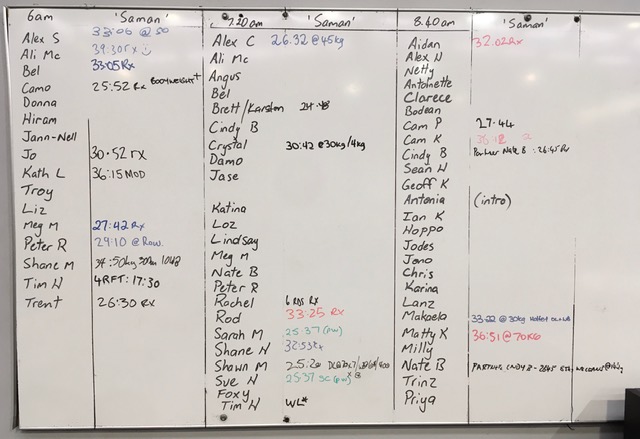 6am 'Saman'
Alex S 33:06 @ 50
Ali Mc 39:30rx
Bel 33:05 Rx
Camo 25:52 Rx BODYWEIGHT
Donna
Hiram
Jann-Nell
Jo 30.52 rx
Kath L 36:15 MOD
Troy
Liz
Meg M 27:42 Rx
Peter R 29:10 @Row.
Shane M
Tim N 4RFT: 17:30
Trent 26:30 RX
7.20am 'Saman'
Alex C 26:32 @45kg
Ali Mc
Angus
Bel
Brett/Karsten
Cindy B
Crystal 30:42 @30kg/4kg
Damo
Jase
Katina
Loz
Lindsay
Meg M
Nate B
Peter R
Rachel 6 RDS Rx
Rod 33:25 RX
Sarah M 25:37 (pw)
Shane N 32:53Rx
Shawn M 25:20
Sue N 25:37
Foxy
Tim N WL*
8.40am 'Saman'
Aidan 32.02 Rx
Alex N
Netty
Antoinette
Clarece
Bodean
Cam P 27.44
Cam K 36:12
Cindy B Partner Nate B : 26:45 Rx
Sean N
Geoff K
Antonia (intro)
Ian K
Hoppo
Jodes
Jono
Chris
Karina
Lanz
Makaela 33:22 @ 30kg
Matty K 36:51 @70KG
Milly
Nate B
Trinz
Priya